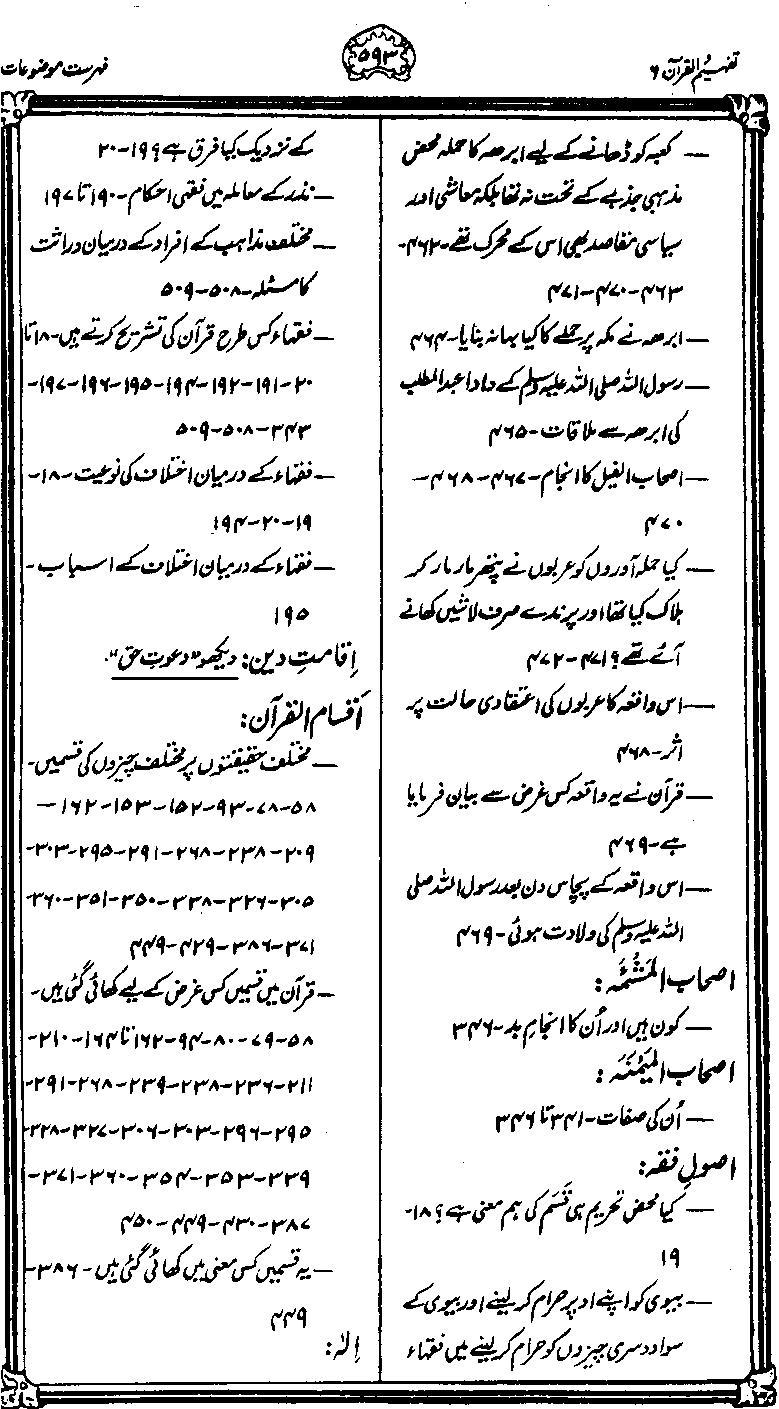 تفہیم القرآن ۶
۵۹۳
فہرست موضوعات
— کعبہ کو ڈھانے کے لیے ابرھہ کا حملہ محض
مذہبی جذبے کے تحت نہ تھا بلکہ معاشی اور
سیاسی مقاصد بھی اس کے محرک تھے-۴۶۲-
۴۶۳-۴۷۰-۴۷۱
— ابرھہ نے مکہ پر حملے کا کیا بہانہ بنایا-۴۶۴
— رسول اللہ صلی اللہ علیہ وسلم کے دادا عبدالمطلب
کی ابرھہ سے ملاقات-۴۶۵
— اصحاب الفیل کا انجام-۴۶۷-۴۶۸-
۴۷۰
— کیا حملہ آوروں کو عربوں نے پتھر مار مار کر
ہلاک کیا تھا اور پرندے صرف لاشیں کھانے
آئے تھے؟ ۴۷۱-۴۷۲
— اس واقعہ کا عربوں کی اعتقادی حالت پر
اثر-۴۶۸
— قرآن نے یہ واقعہ کس غرض سے بیان فرمایا
ہے-۴۶۹
— اس واقعہ کے پچاس دن بعد رسول اللہ صلی
اللہ علیہ وسلم کی ولادت ہوئی-۴۶۹
اصحاب المَشْئَمَہ:
— کون ہیں اور اُن کا انجامِ بد-۳۴۶
اصحاب المَیْمَنَہ:
— اُن کی صفات-۳۴۱ تا ۳۴۶
اصولِ فقہ:
— کیا محض تحریم ہی قَسَم کی ہم معنی ہے؟ ۱۸-
۱۹
— بیوی کو اپنے اوپر حرام کر لینے اور بیوی کے
سوا دوسری چیزوں کو حرام کر لینے میں فقہاء
کے نزدیک کیا فرق ہے؟ ۱۹-۲۰
— نذر کے معاملہ میں فقہی احکام-۱۹۰ تا ۱۹۷
— مختلف مذاہب کے افراد کے درمیان وراثت
کا مسئلہ-۵۰۸-۵۰۹
— فقہاء کس طرح قرآن کی تشریح کرتے ہیں-۱۸ تا
۲۰-۱۹۱-۱۹۲-۱۹۴-۱۹۵-۱۹۶-۱۹۷-
۳۴۳-۵۰۸-۵۰۹
— فقہاء کے درمیان اختلاف کی نوعیت-۱۸-
۱۹-۲۰-۱۹۴
— فقہاء کے درمیان اختلاف کے اسباب-
۱۹۵
اِقامتِ دین: دیکھو "دعوتِ حق".
اَقسام القرآن:
— مختلف حقیقتوں پر مختلف چیزوں کی قسمیں-
۵۸-۷۸-۹۳-۱۵۲-۱۵۳-۱۶۲-
۲۰۹-۲۳۸-۲۶۸-۲۹۱-۲۹۵-۳۰۳-
۳۰۵-۳۲۶-۳۳۸-۳۵۰-۳۵۱-۳۶۰-
۳۷۱-۳۸۶-۴۲۹-۴۴۹
— قرآن میں قسمیں کس غرض کے لیے کھائی گئی ہیں-
۵۸-۷۹-۸۰-۹۴-۱۶۲ تا ۱۶۴-۲۱۰-
۲۱۱-۲۳۶-۲۳۸-۲۳۹-۲۶۸-۲۹۱-
۲۹۵-۲۹۶-۳۰۳-۳۰۶-۳۲۷-۳۲۸-
۳۳۹-۳۵۳-۳۵۴-۳۶۰-۳۷۱-
۳۸۷-۴۳۰-۴۴۹-۴۵۰
— یہ قسمیں کس معنی میں کھائی گئی ہیں-۳۸۶-
۴۴۹
اِلٰہ: